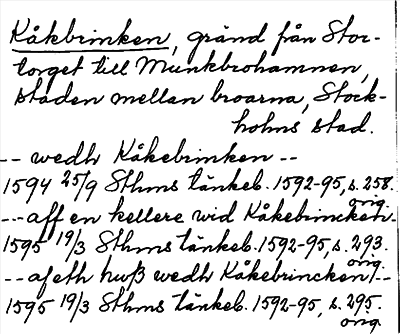 Kåkbrinken, gränd från Stor-
torget till Munkbrohamnen,
staden mellan broarna, Stock-
holms stad.
-- wedh Kåkebrinken --
1594 25/9 Sthms tänkeb. 1592-95, s. 258.
orig.
-- aff en kellere wid Kåkebrincken.
1595 19/3 Sthms tänkeb. 1592-95, s. 293.
orig.
-- afeth huß wedh Kåkebrincken --
1595 19/3 Sthms tänkeb. 1592-95, s. 295.
orig.